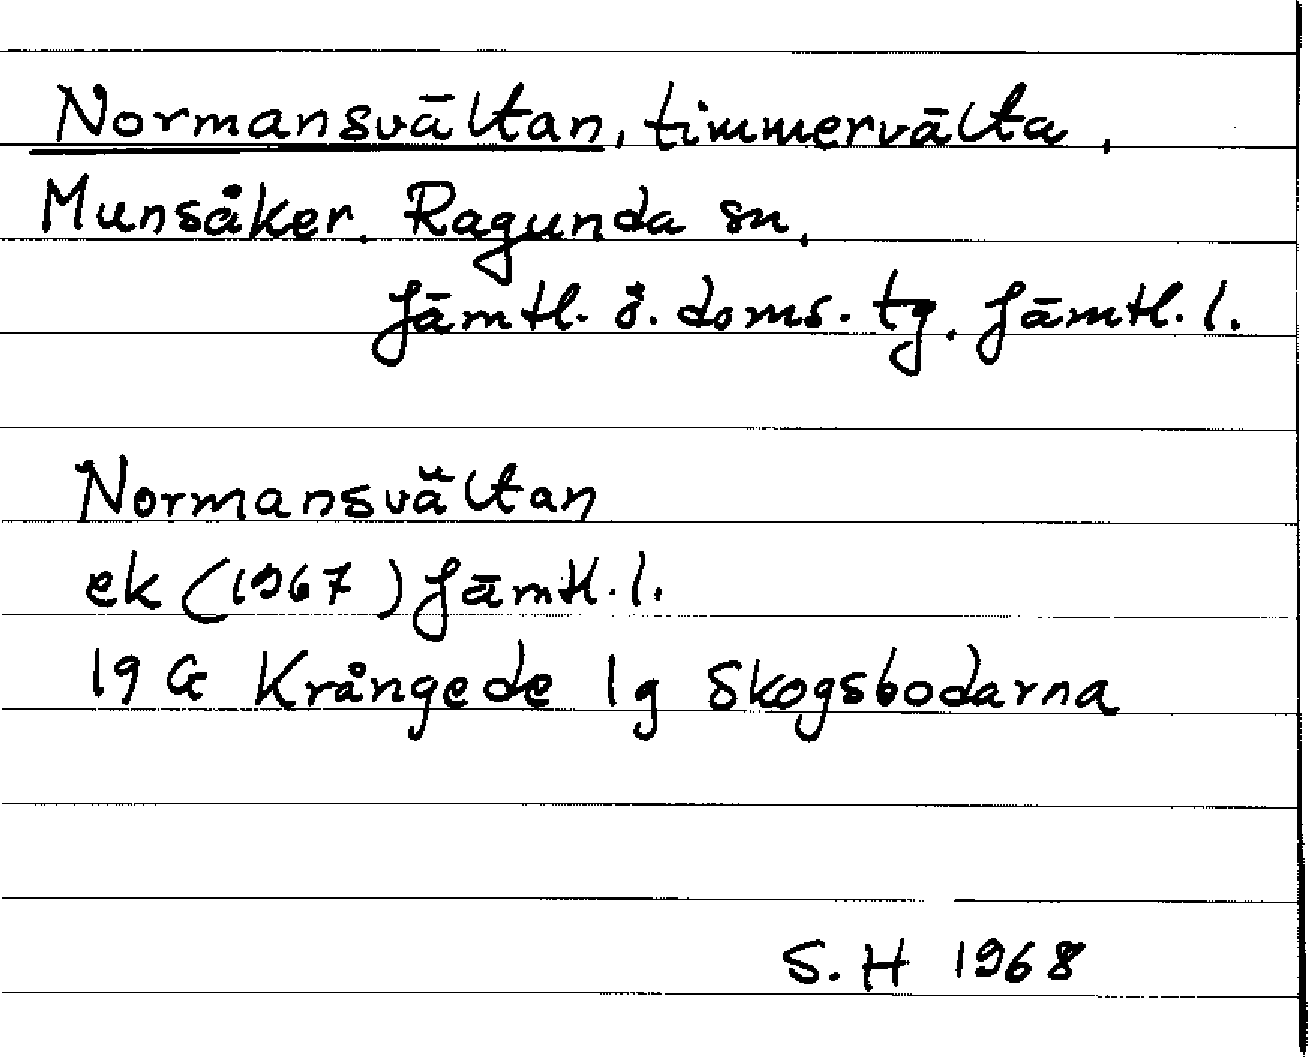 Normansvältan, timmervälta,
Munsåker. Ragunda sn,
Jämtl. ö. doms. tg. Jämtl. l.
Normansvältan
ek (1967) Jämtl. l.
19 G Krångede 1g Skogsbodarna
S. H 1968